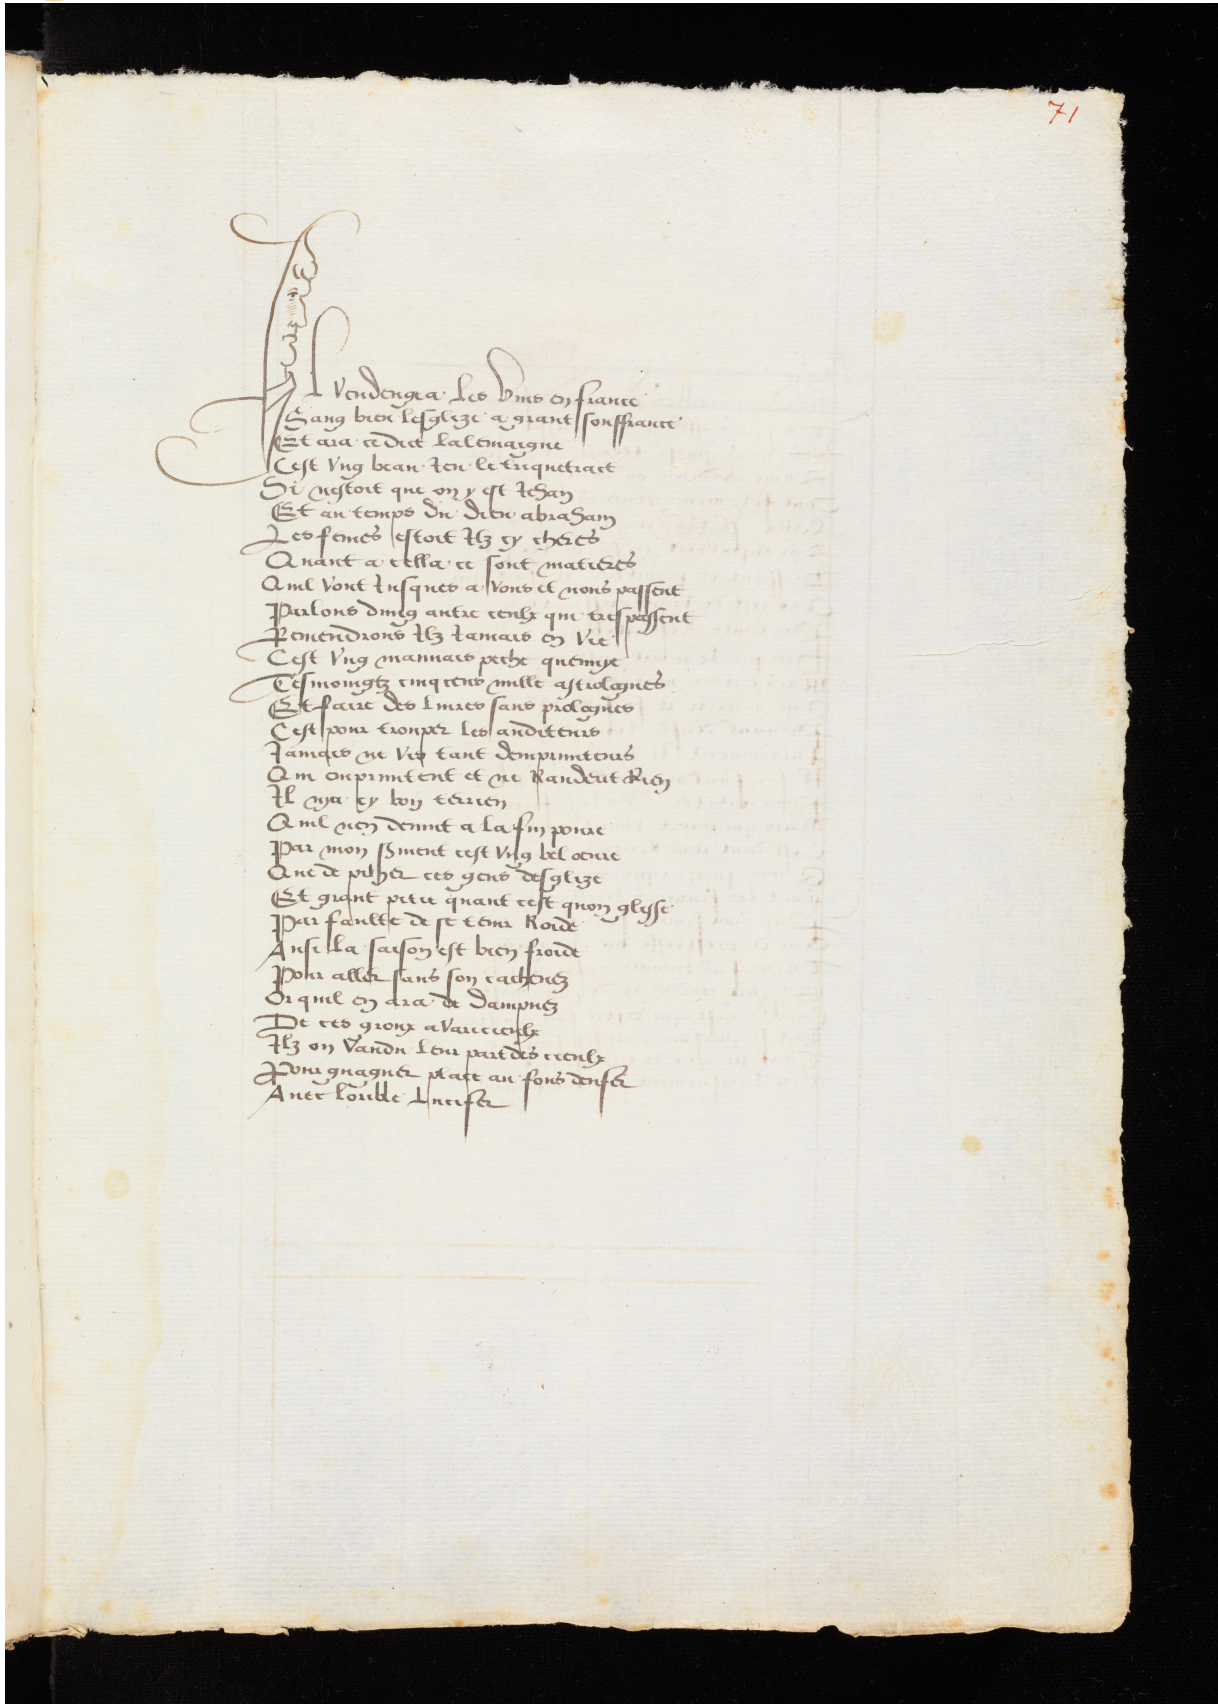 71
Il Vendengea les Vins en france
Sang bien lesglize a grant souffrance
Et ara ce dict lalemaigne
Cest Vng beau Jeu le triquetract
Si nestoit que on y est Jehan
Et au temps du dieu abraham
Les femes estoit Ilz cy cheres
Quant a cella ce sont matieres
Quil Vont Jusques a Vous et nous passent
Parlons dung autre ceulx qui trespassent
Remendrons Ilz Jamais en Vie
Cest Vng mauuais peche quenuye
Tesmoingtz cinq cens mille astrologues
Et faire des liures sans prologues
Cest pour tromper les auditeurs
Jamais ne Vis tant demprunteurs
Qui empruntent et ne Randent Rien
Il nya cy bon terrien
Quil nen deuint a la fin poure
Par mon sment cest Vng bel oeure
Que de piller ces gens desglize
Et grant pitie quant cest quon glisse
Par faulte de se tenir Roide
Ausi la saison est bien froide
Pour aller sans son cachenez
Or quil en ara de dampnez
De ces groux aVaricieulx
Ilz on Vandu leur part des cieulx
Pour gnagner place au fons denfer
Auec lorible Lucifer